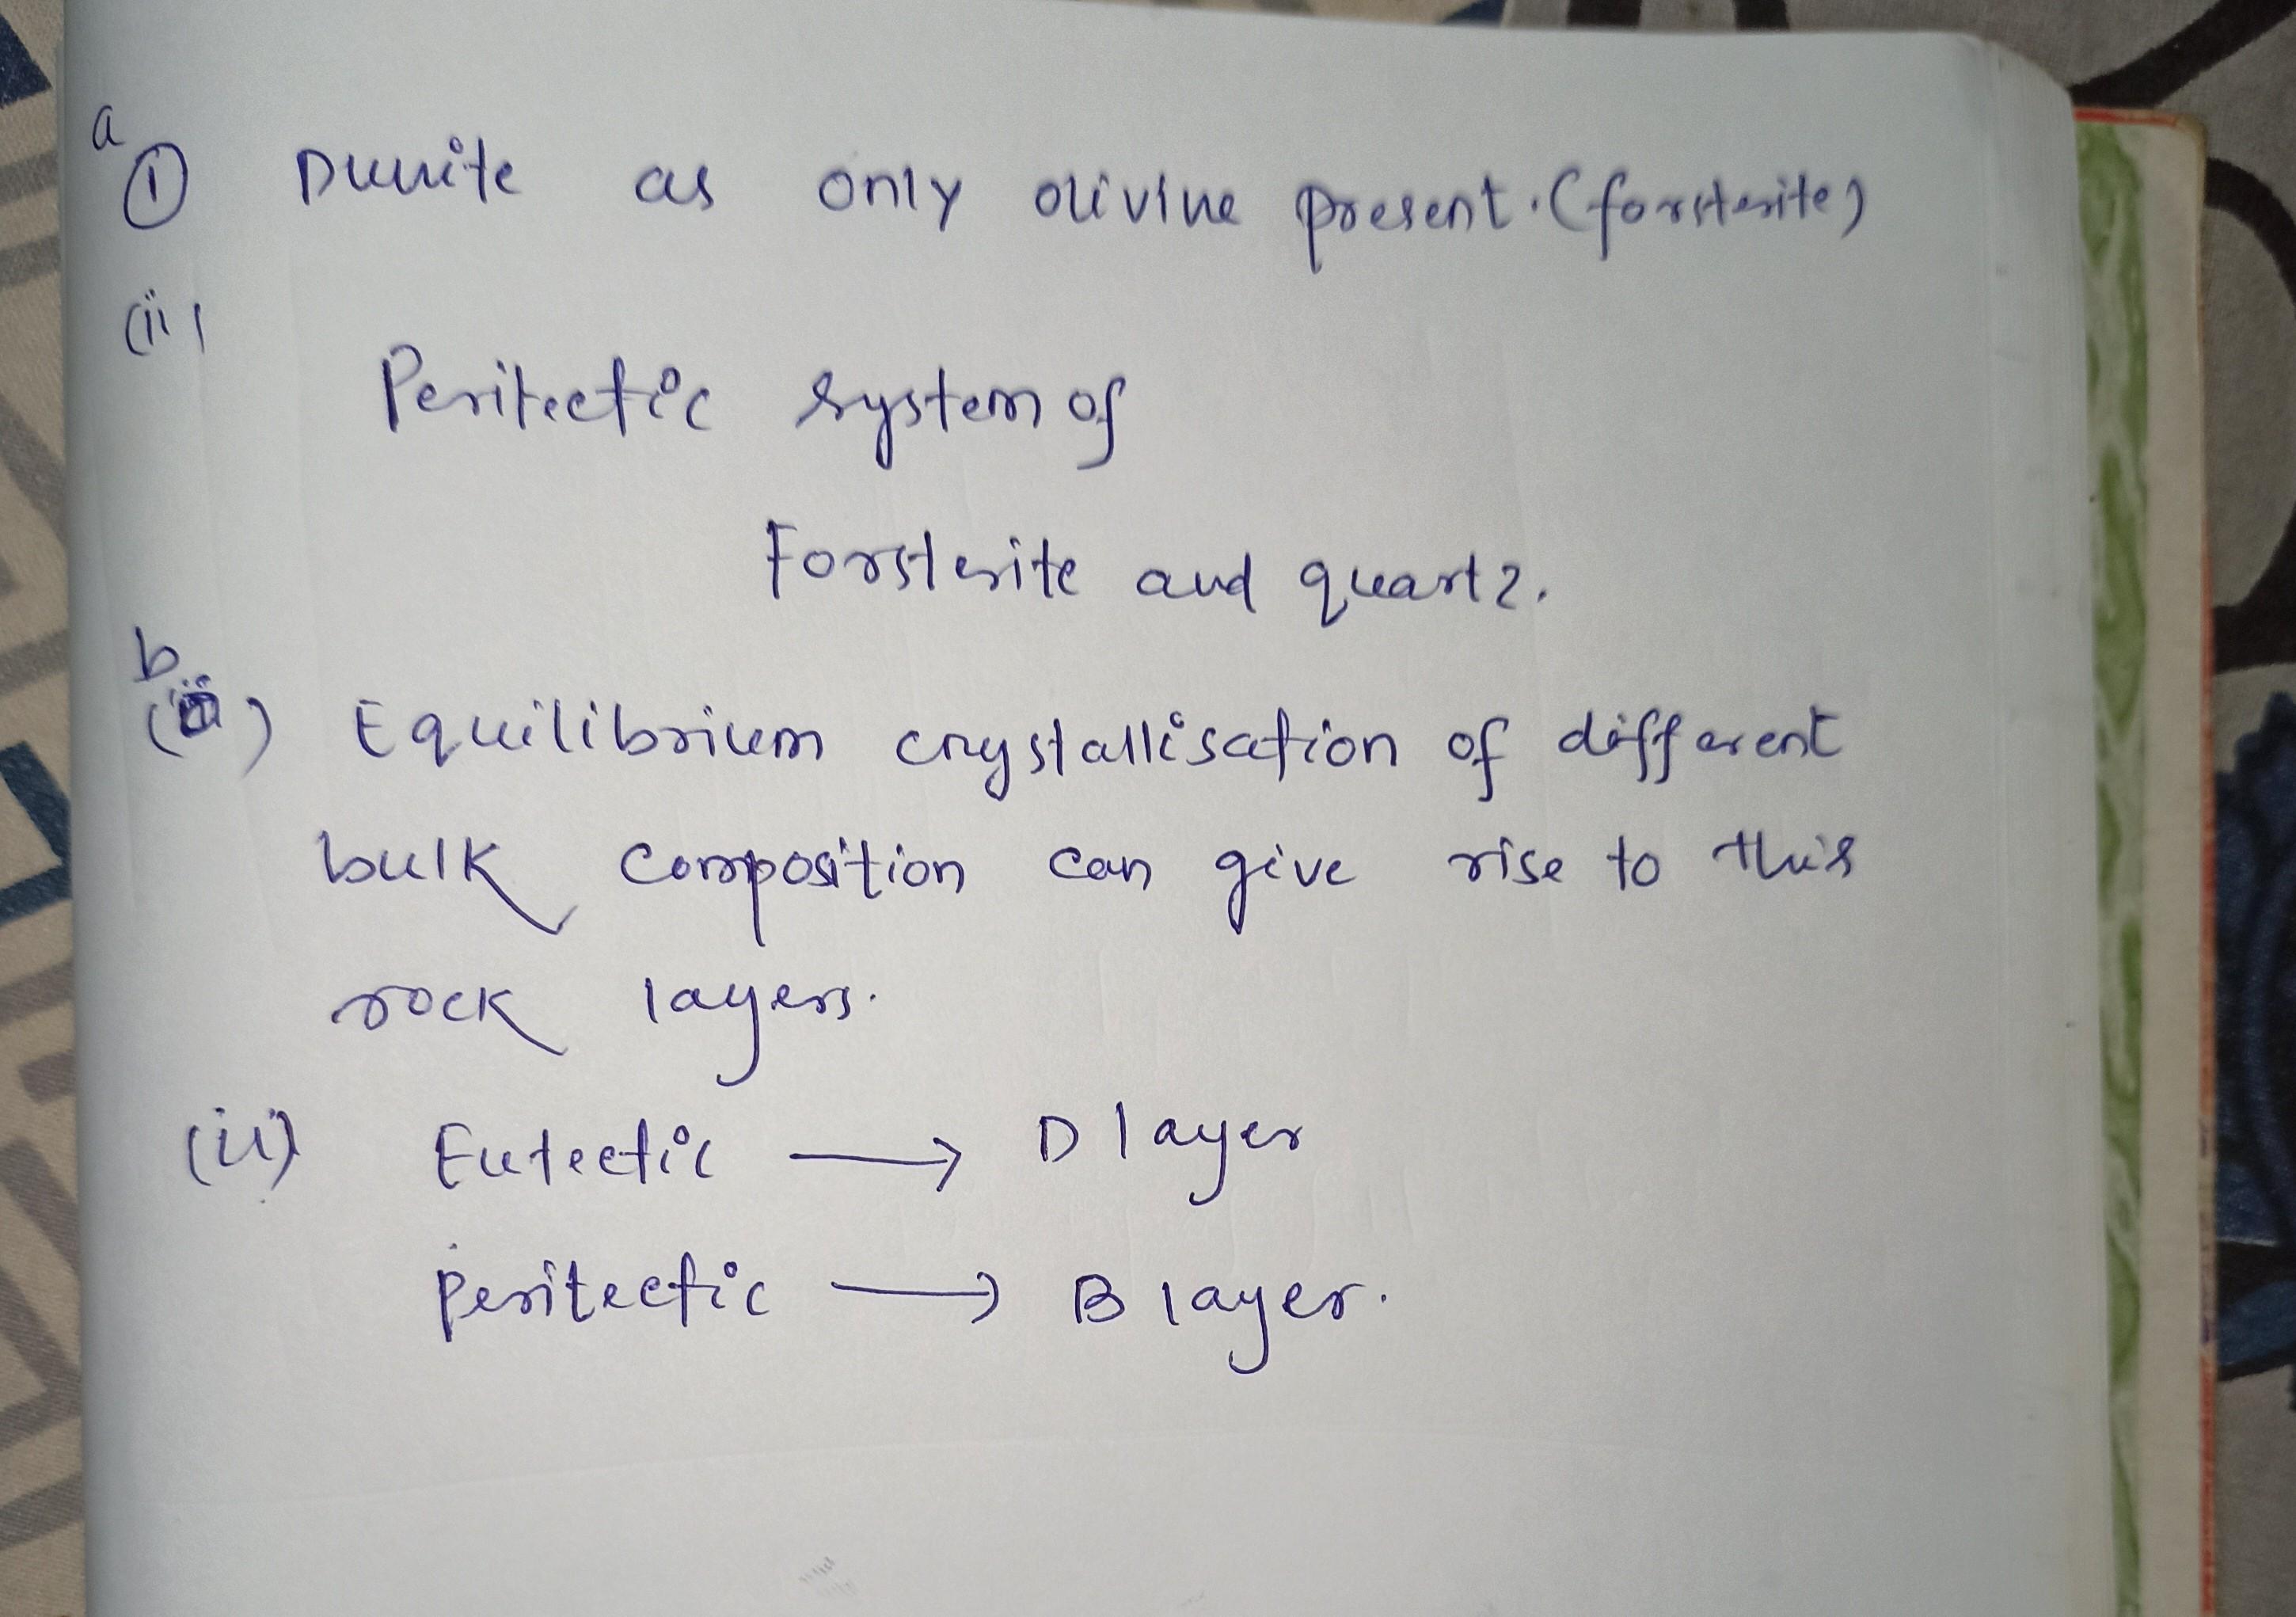 a
① Dunite as only olivine present. (forsterite)
(ii)
Peritectic system of
Forsterite and quartz.
b
(i) Equilibrium crystallisation of different
bulk composition can give rise to this
rock layers.
(ii) Eutectic → D layer
Peritectic → B layer.